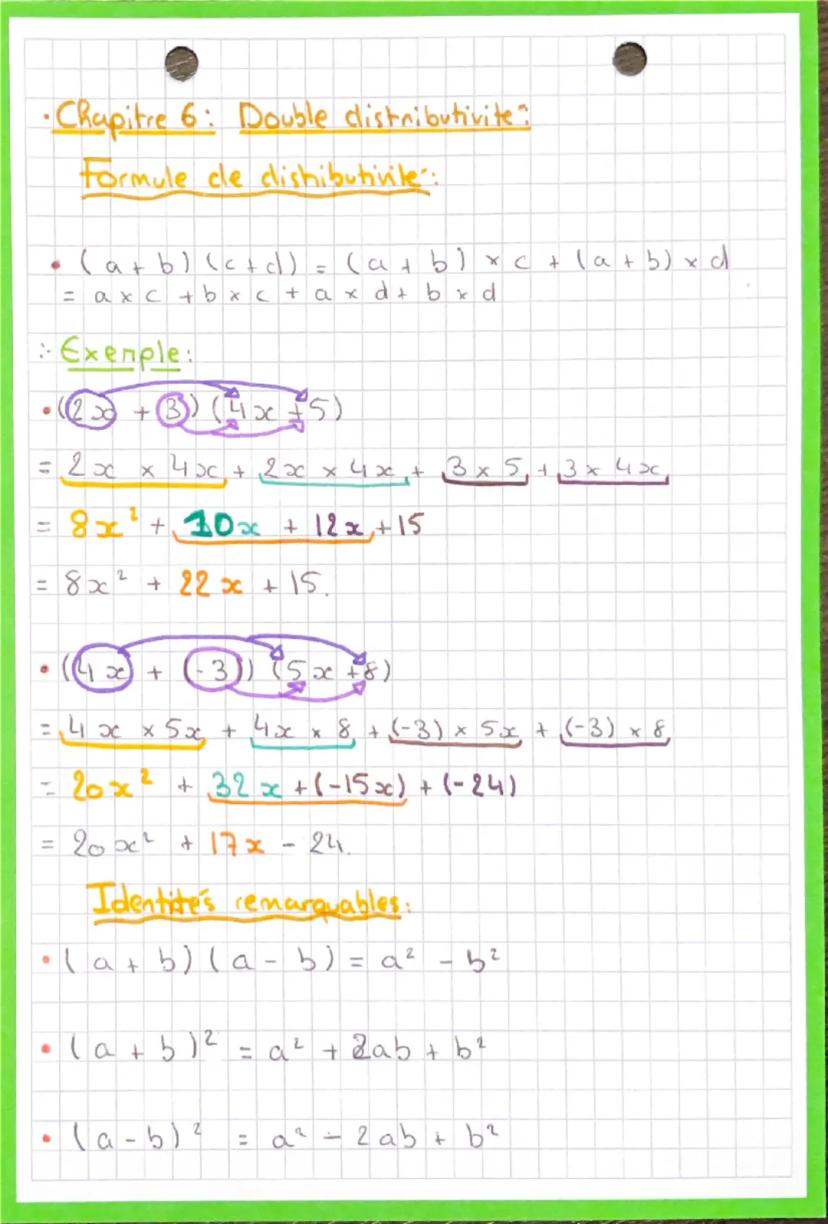 • Chapitre 6 : Double distributivité :
Formule de distributivité :
• (a + b) (c + d) = (a + b) × c + (a + b) × d
= a × c + b × c + a × d + b × d
∴ Exemple :
• (2x + 3) (4x + 5)
= 2x × 4x + 2x × 4x + 3 × 5 + 3 × 4x
= 8x² + 10x + 12x + 15
= 8x² + 22x + 15.
• (4x + (-3)) (5x + 8)
= 4x × 5x + 4x × 8 + (-3) × 5x + (-3) × 8
= 20x² + 32x + (-15x) + (-24)
= 20x² + 17x - 24.
Identités remarquables :
• (a + b) (a - b) = a² - b²
• (a + b)² = a² + 2ab + b²
• (a - b)² = a² - 2ab + b²